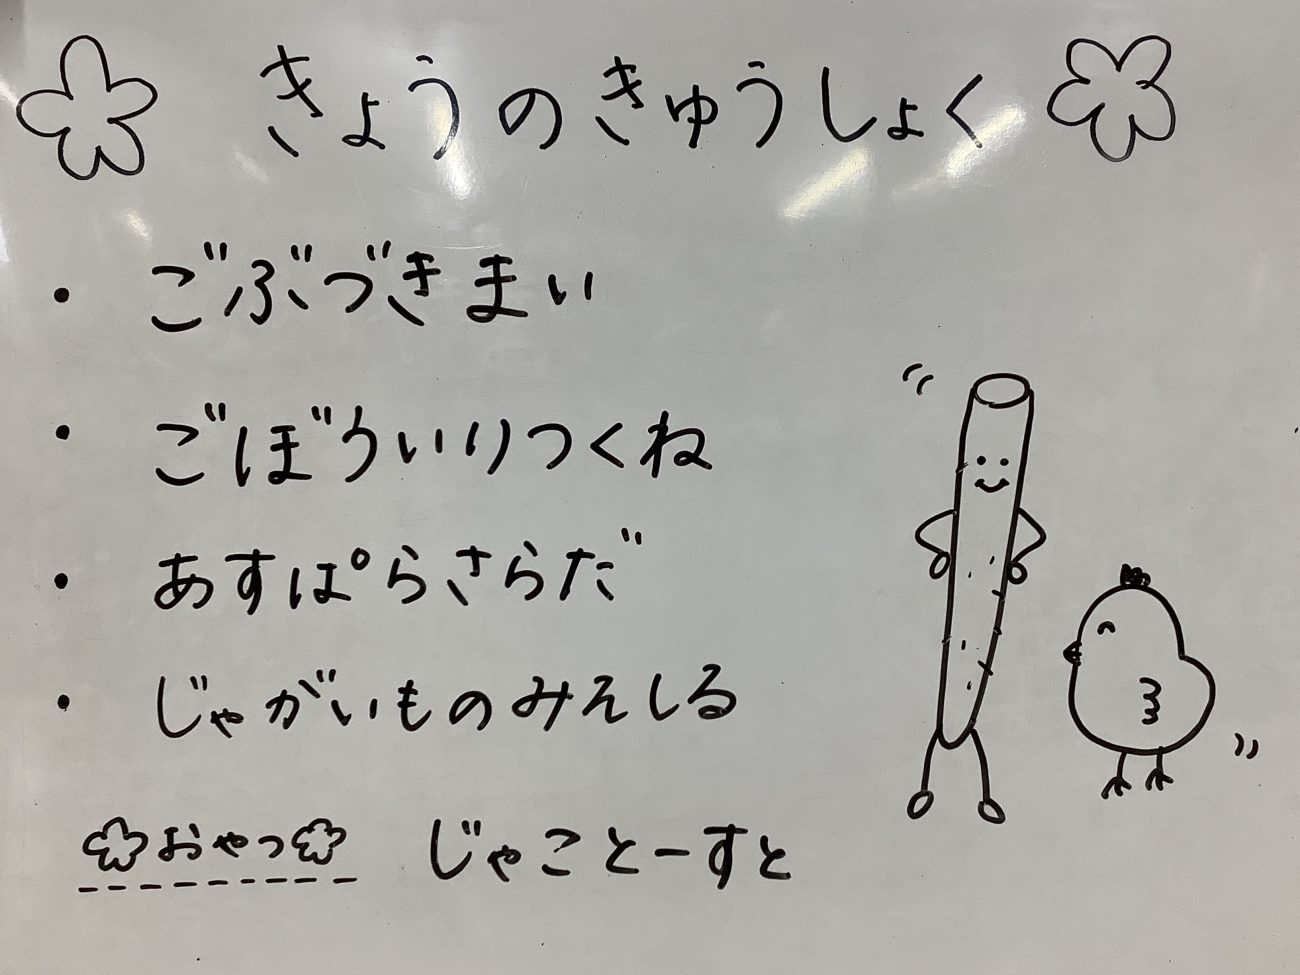 きょうのきゅうしょく
・ごぶづきまい
・ごぼういりつくね
・あすぱらさらだ
・じゃがいものみそしる
おやつ じゃことーすと